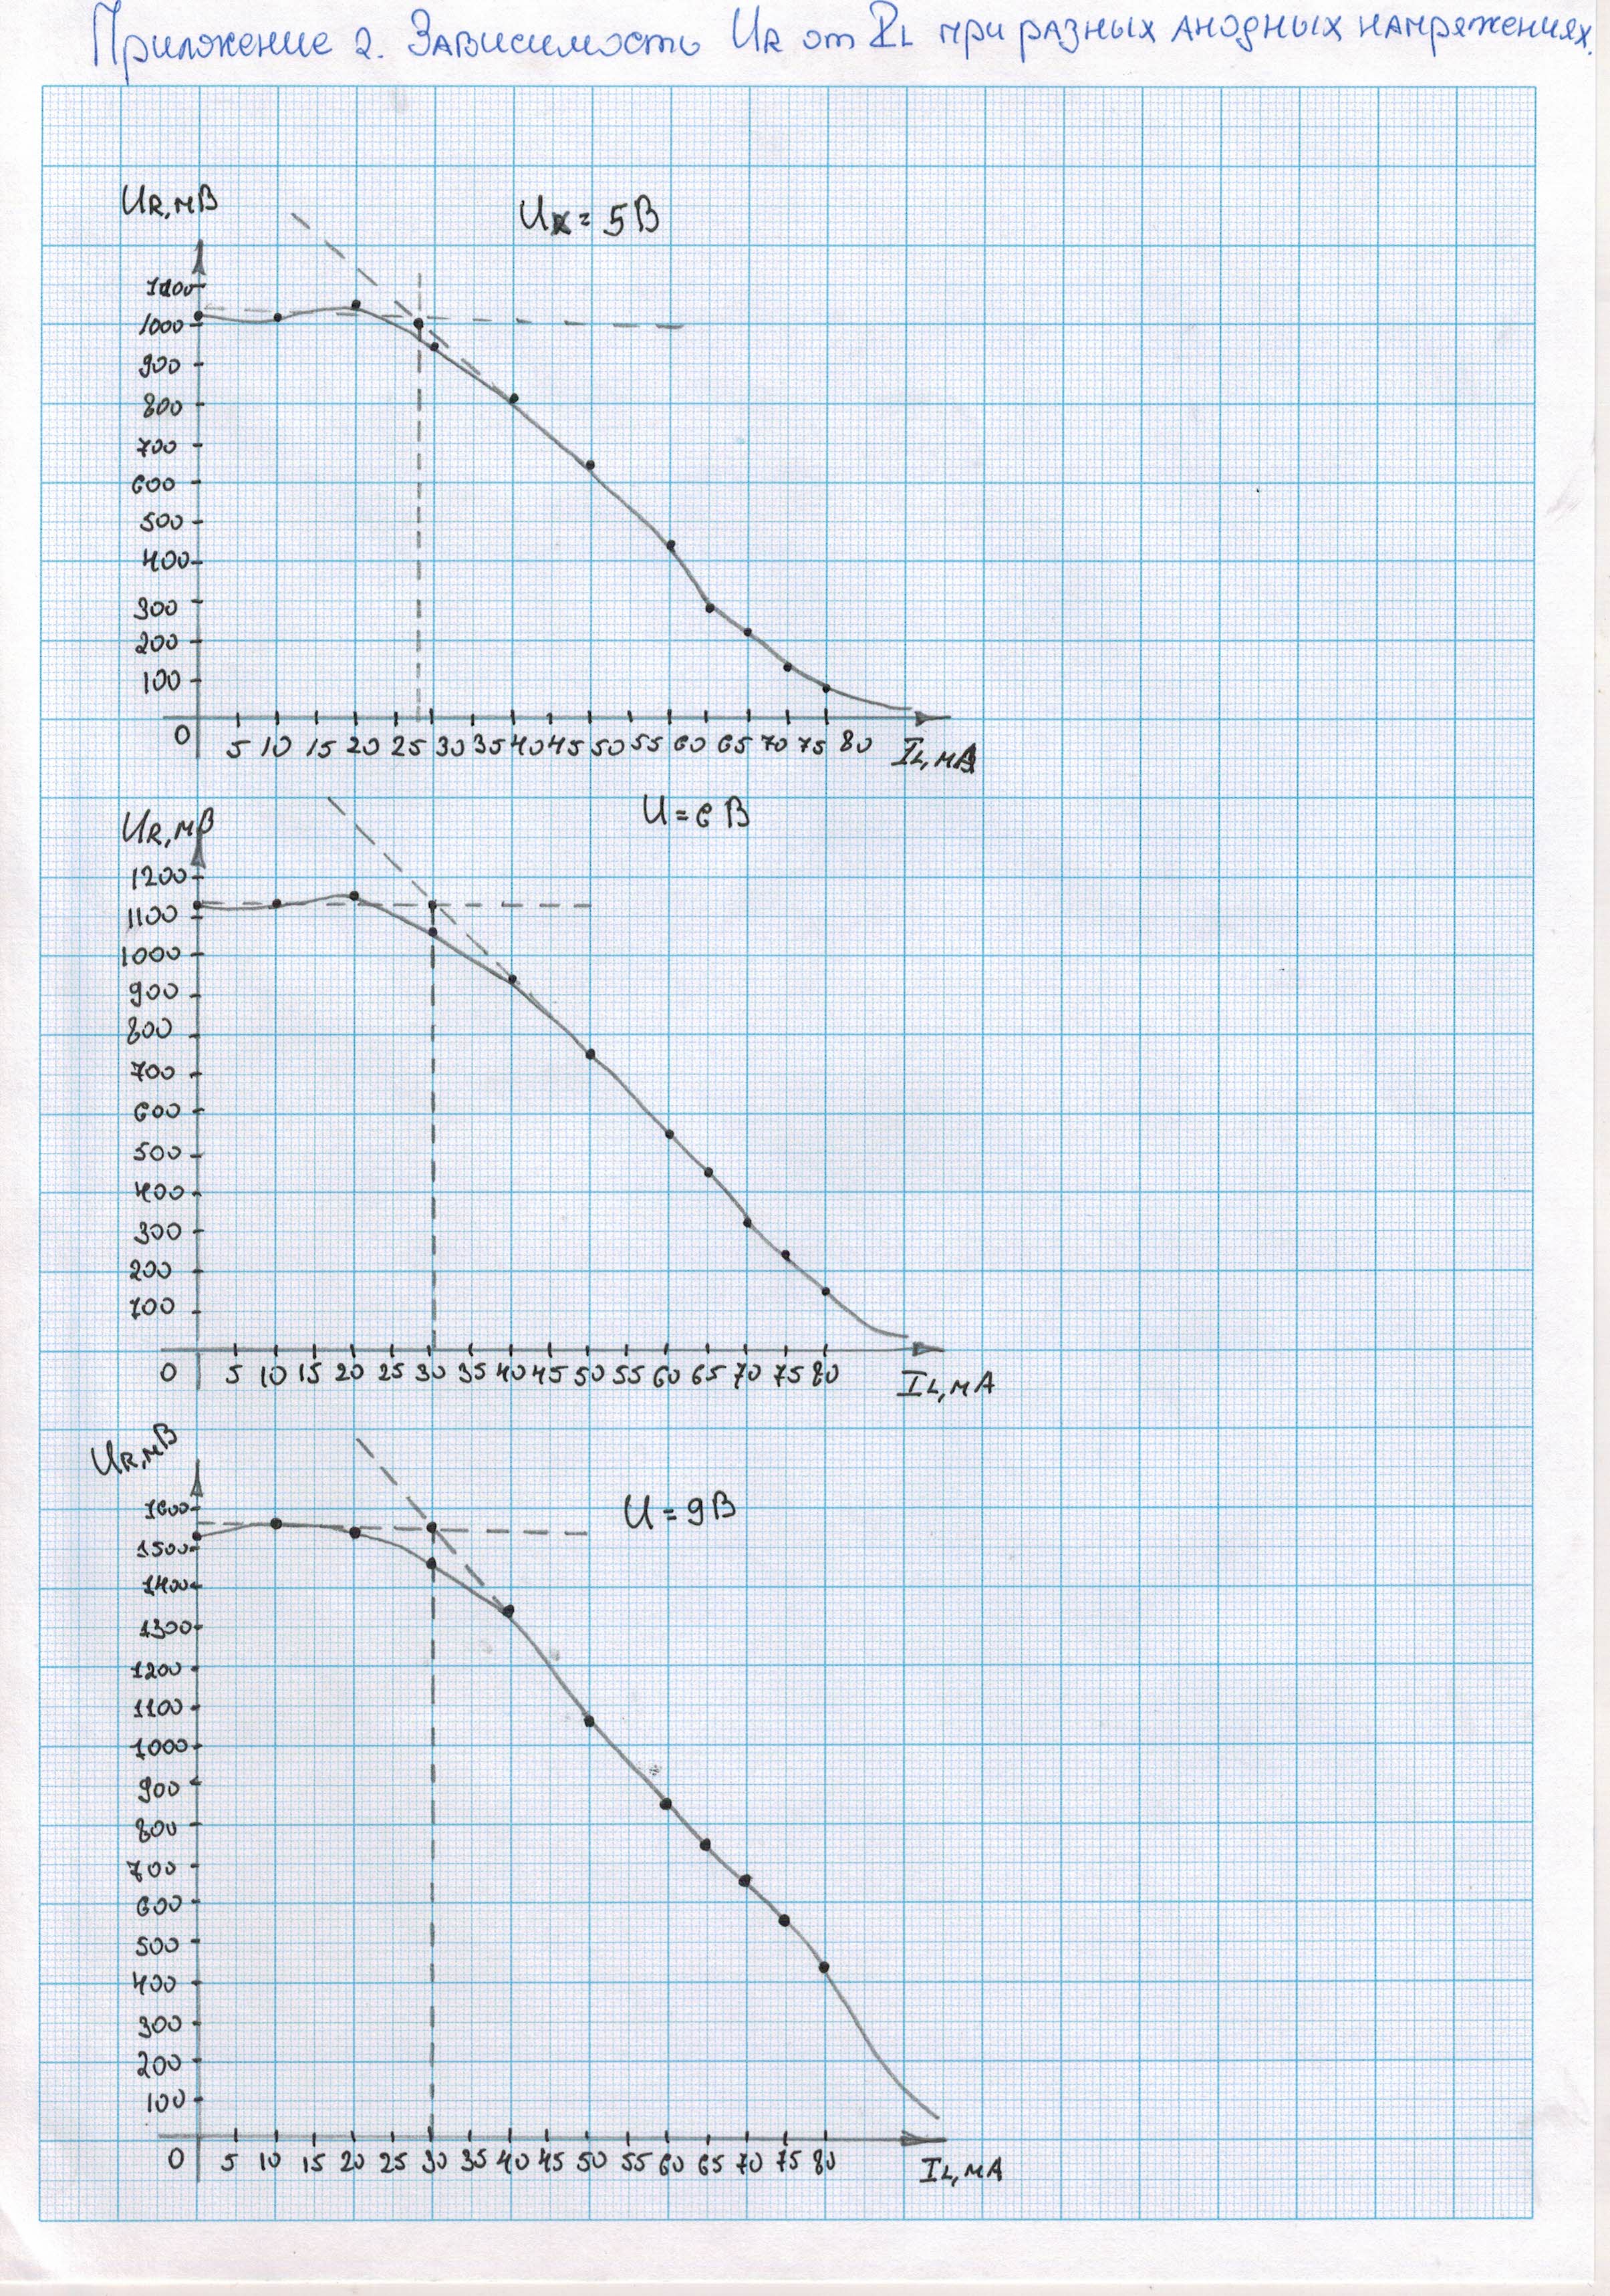 Приложение 2. Зависимость UR от IL при разных анодных напряжениях.
UR, мВ
U = 5В
1100
1000
900
800
700
600
500
400
300
200
100
0 5 10 15 20 25 30 35 40 45 50 55 60 65 70 75 80 IL, мА
UR, мВ
U = 6В
1200
1100
1000
900
800
700
600
500
400
300
200
100
0 5 10 15 20 25 30 35 40 45 50 55 60 65 70 75 80 IL, мА
UR, мВ
U = 9В
1600
1500
1400
1300
1200
1100
1000
900
800
700
600
500
400
300
200
100
0 5 10 15 20 25 30 35 40 45 50 55 60 65 70 75 80 IL, мА